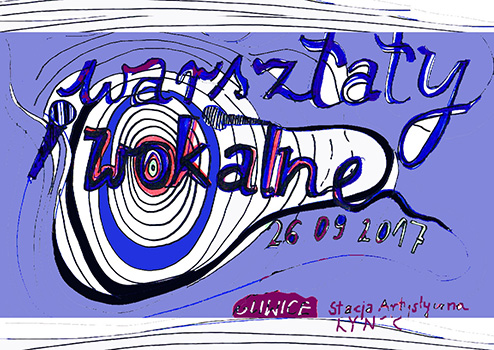 warsztaty
wokalne
26 09 2017
GLIWICE Stacja Artystyczna
RYNEK